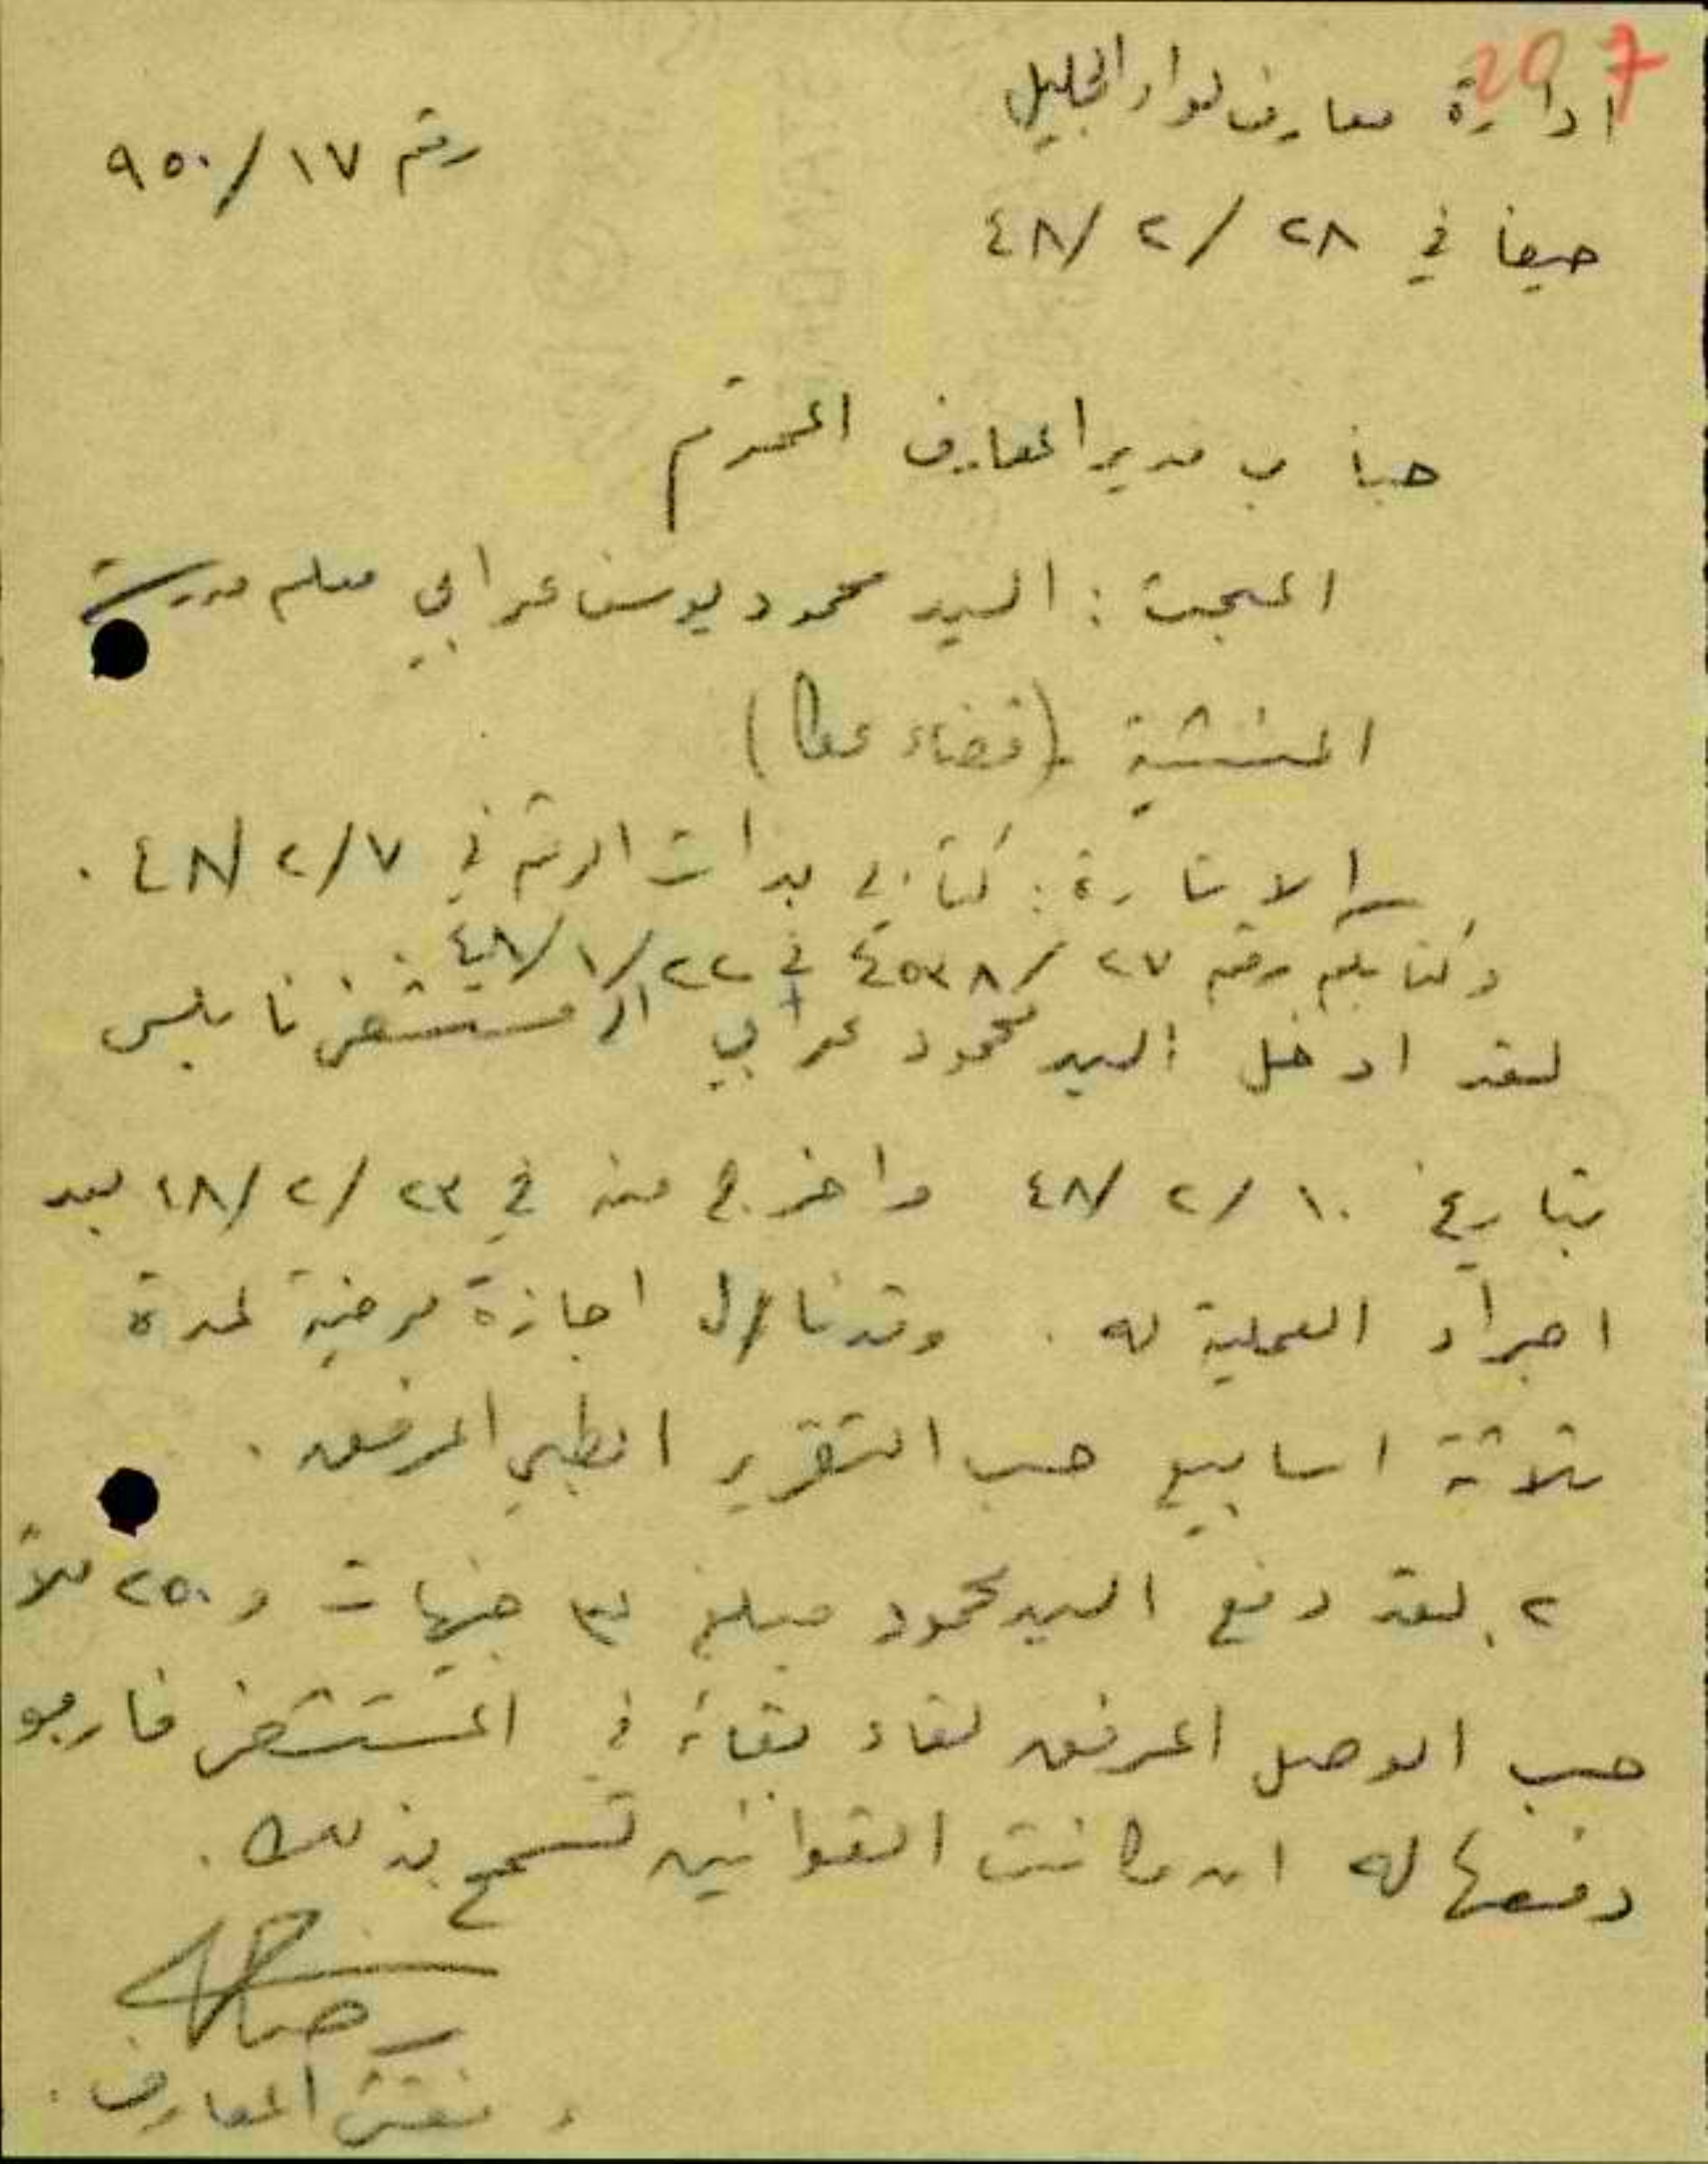 207
ادارة معارف لواء الجليل
رقم ١٧/٩٥٠
حيفا في ٢٨/٢/٤٨
جناب مدير المعارف المحترم
المبحث : السيد محمود يوسف عرابي معلم مدرسة
المنشية (قضاء عكا)
الاشارة : كتابي بذات الرقم في ٧/٢/٤٨ .
وكتابكم رقم ٢٧/٤٥٣٨ في ٢٢/١/٤٨ .
لقد ادخل السيد محمود عرابي الى مستشفى نابلس
بتاريخ ١٠/٢/٤٨ واخرج منه في ٢٣/٢/٤٨ بعد
اجراء العملية له . وقد نال اجازة مرضية لمدة
ثلاثة اسابيع حسب التقرير الطبي المرفق .
٢. لقد دفع السيد محمود مبلغ ٣ جنيهات و ٢٥٠ ملاً
حسب الوصل المرفق لقاء بقائه في المستشفى فارجو
دفعها له ان كانت القوانين تسمح بذلك .
مفتش المعارف .